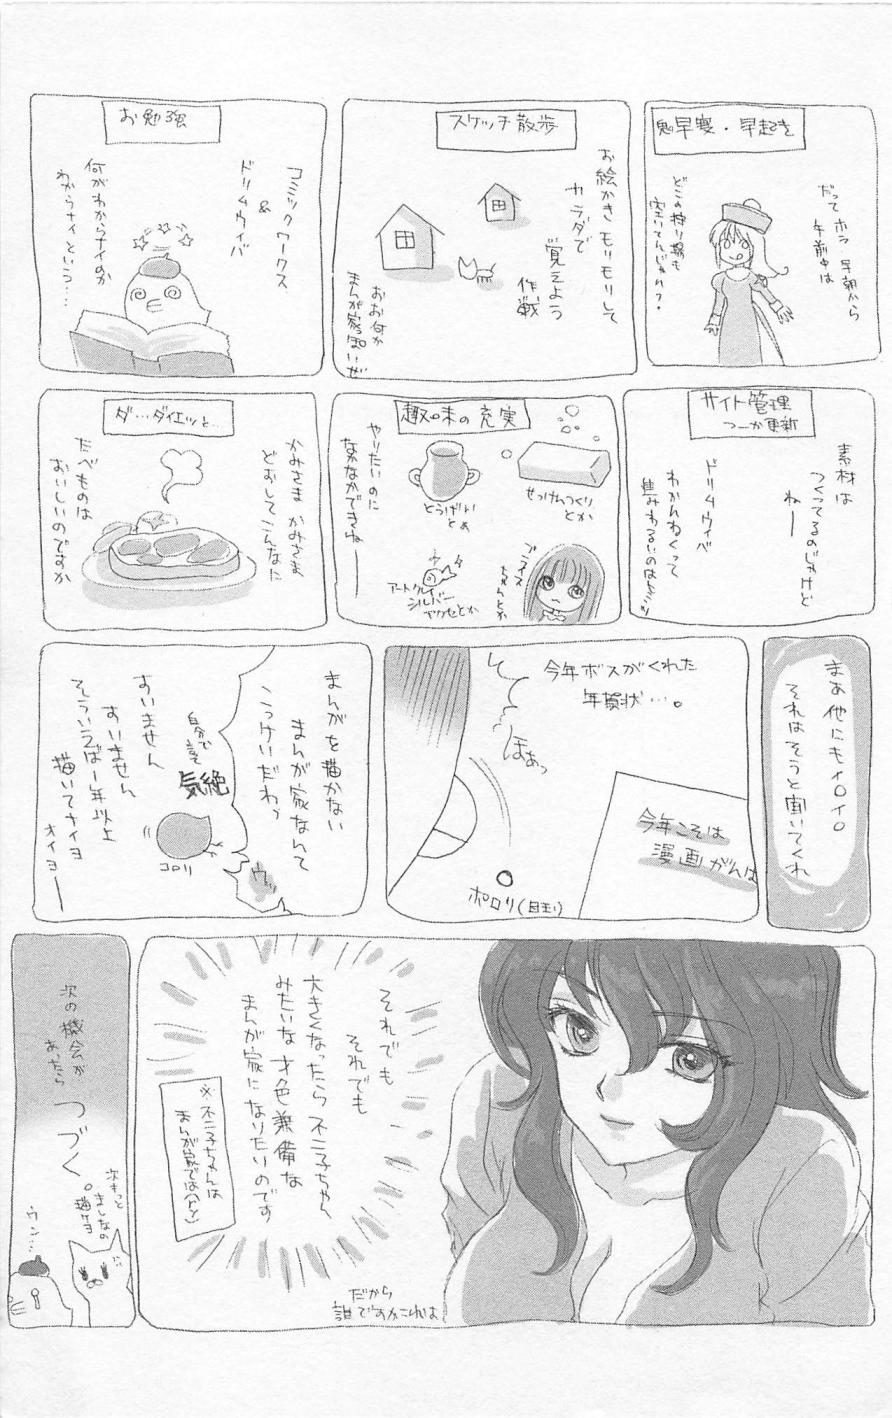 早寝・早起き
だって ホラ 早朝から
午前中は
どこの狩り場も
空いてんじゃれ?
スケッチ散歩
お絵かき モリモリして
カラダで
覚えよう
作戦
おお何か
まんが家っぽいぜ
お勉強
コミックワークス
&
ドリムウィバ
何がわからナイのか
わからナイ という…
サイト管理
つーか更新
素材は
つくってるのじゃけど
ねー
ドリムウィバ
わかんねくって
趣味の充実
せっけんつくり
とか
とうげいとか
やりたいのに
なかなかできねー
アートクレイ
シルバー
アクセとか
ブライス
ちゃんとか
ダ…ダイエッと…
かみさま かみさま
どおしてこんなに
たべものは
おいしいのですか
まぁ 他にもイロイロ
それはそうと聞いてくれ
今年ボスがくれた
年賀状…。
ほぁっ
今年こそは
漫画がんば
ポロリ(目玉)
まんがを描かない
まんが家なんて
こっけいだわっ
ウッ
自分で
言って
気絶
コロリ
すいません
すいません
そういえば1年以上
描いてナイヨ
オイヨー
それでも
それでも
大きくなったら不二子ちゃん
みたいな才色兼備な
まんが家になりたいのです
※不二子ちゃんは
まんが家では
だから
誰ですかこれは
次の機会が
あったら
つづく。
次もっと
ましなの
描けヨ
ウン…